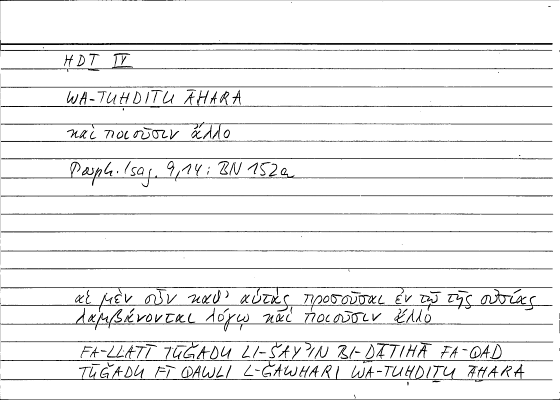 HDṮ IV
WA-TUḤDIṮU ĀḪARA
καὶ ποιοῦσιν ἄλλο
Porph. Isag. 9,14: BN 152a
αἱ μὲν οὖν καθ' αὑτὰς προσοῦσαι ἐν τῷ τῆς οὐσίας
λαμβάνονται λόγῳ καὶ ποιοῦσιν ἄλλο
FA-LLATĪ TŪĞADU LI-ŠAY'IN BI-ḎĀTIHĀ FA-QAD
TŪĞADU FĪ QAWLI L-ĞAWHARI WA-TUḤDIṮU ĀḪARA